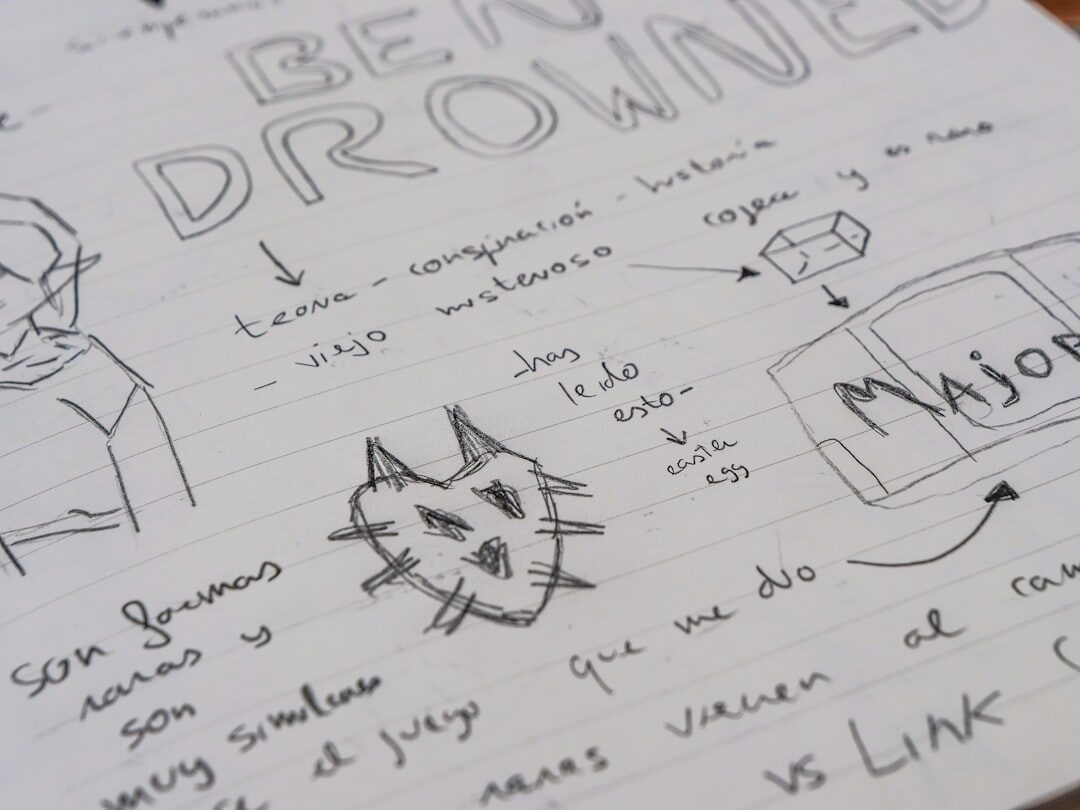 BEN
DROWNED
teoria - conspiración - historia
- viejo misterioso
cogea y es raro
-has
leido
esto-
easter
egg
MAJOR
son formas
raras y
son
muy similares
el juego
que me dio
raras vienen al
vs LINK